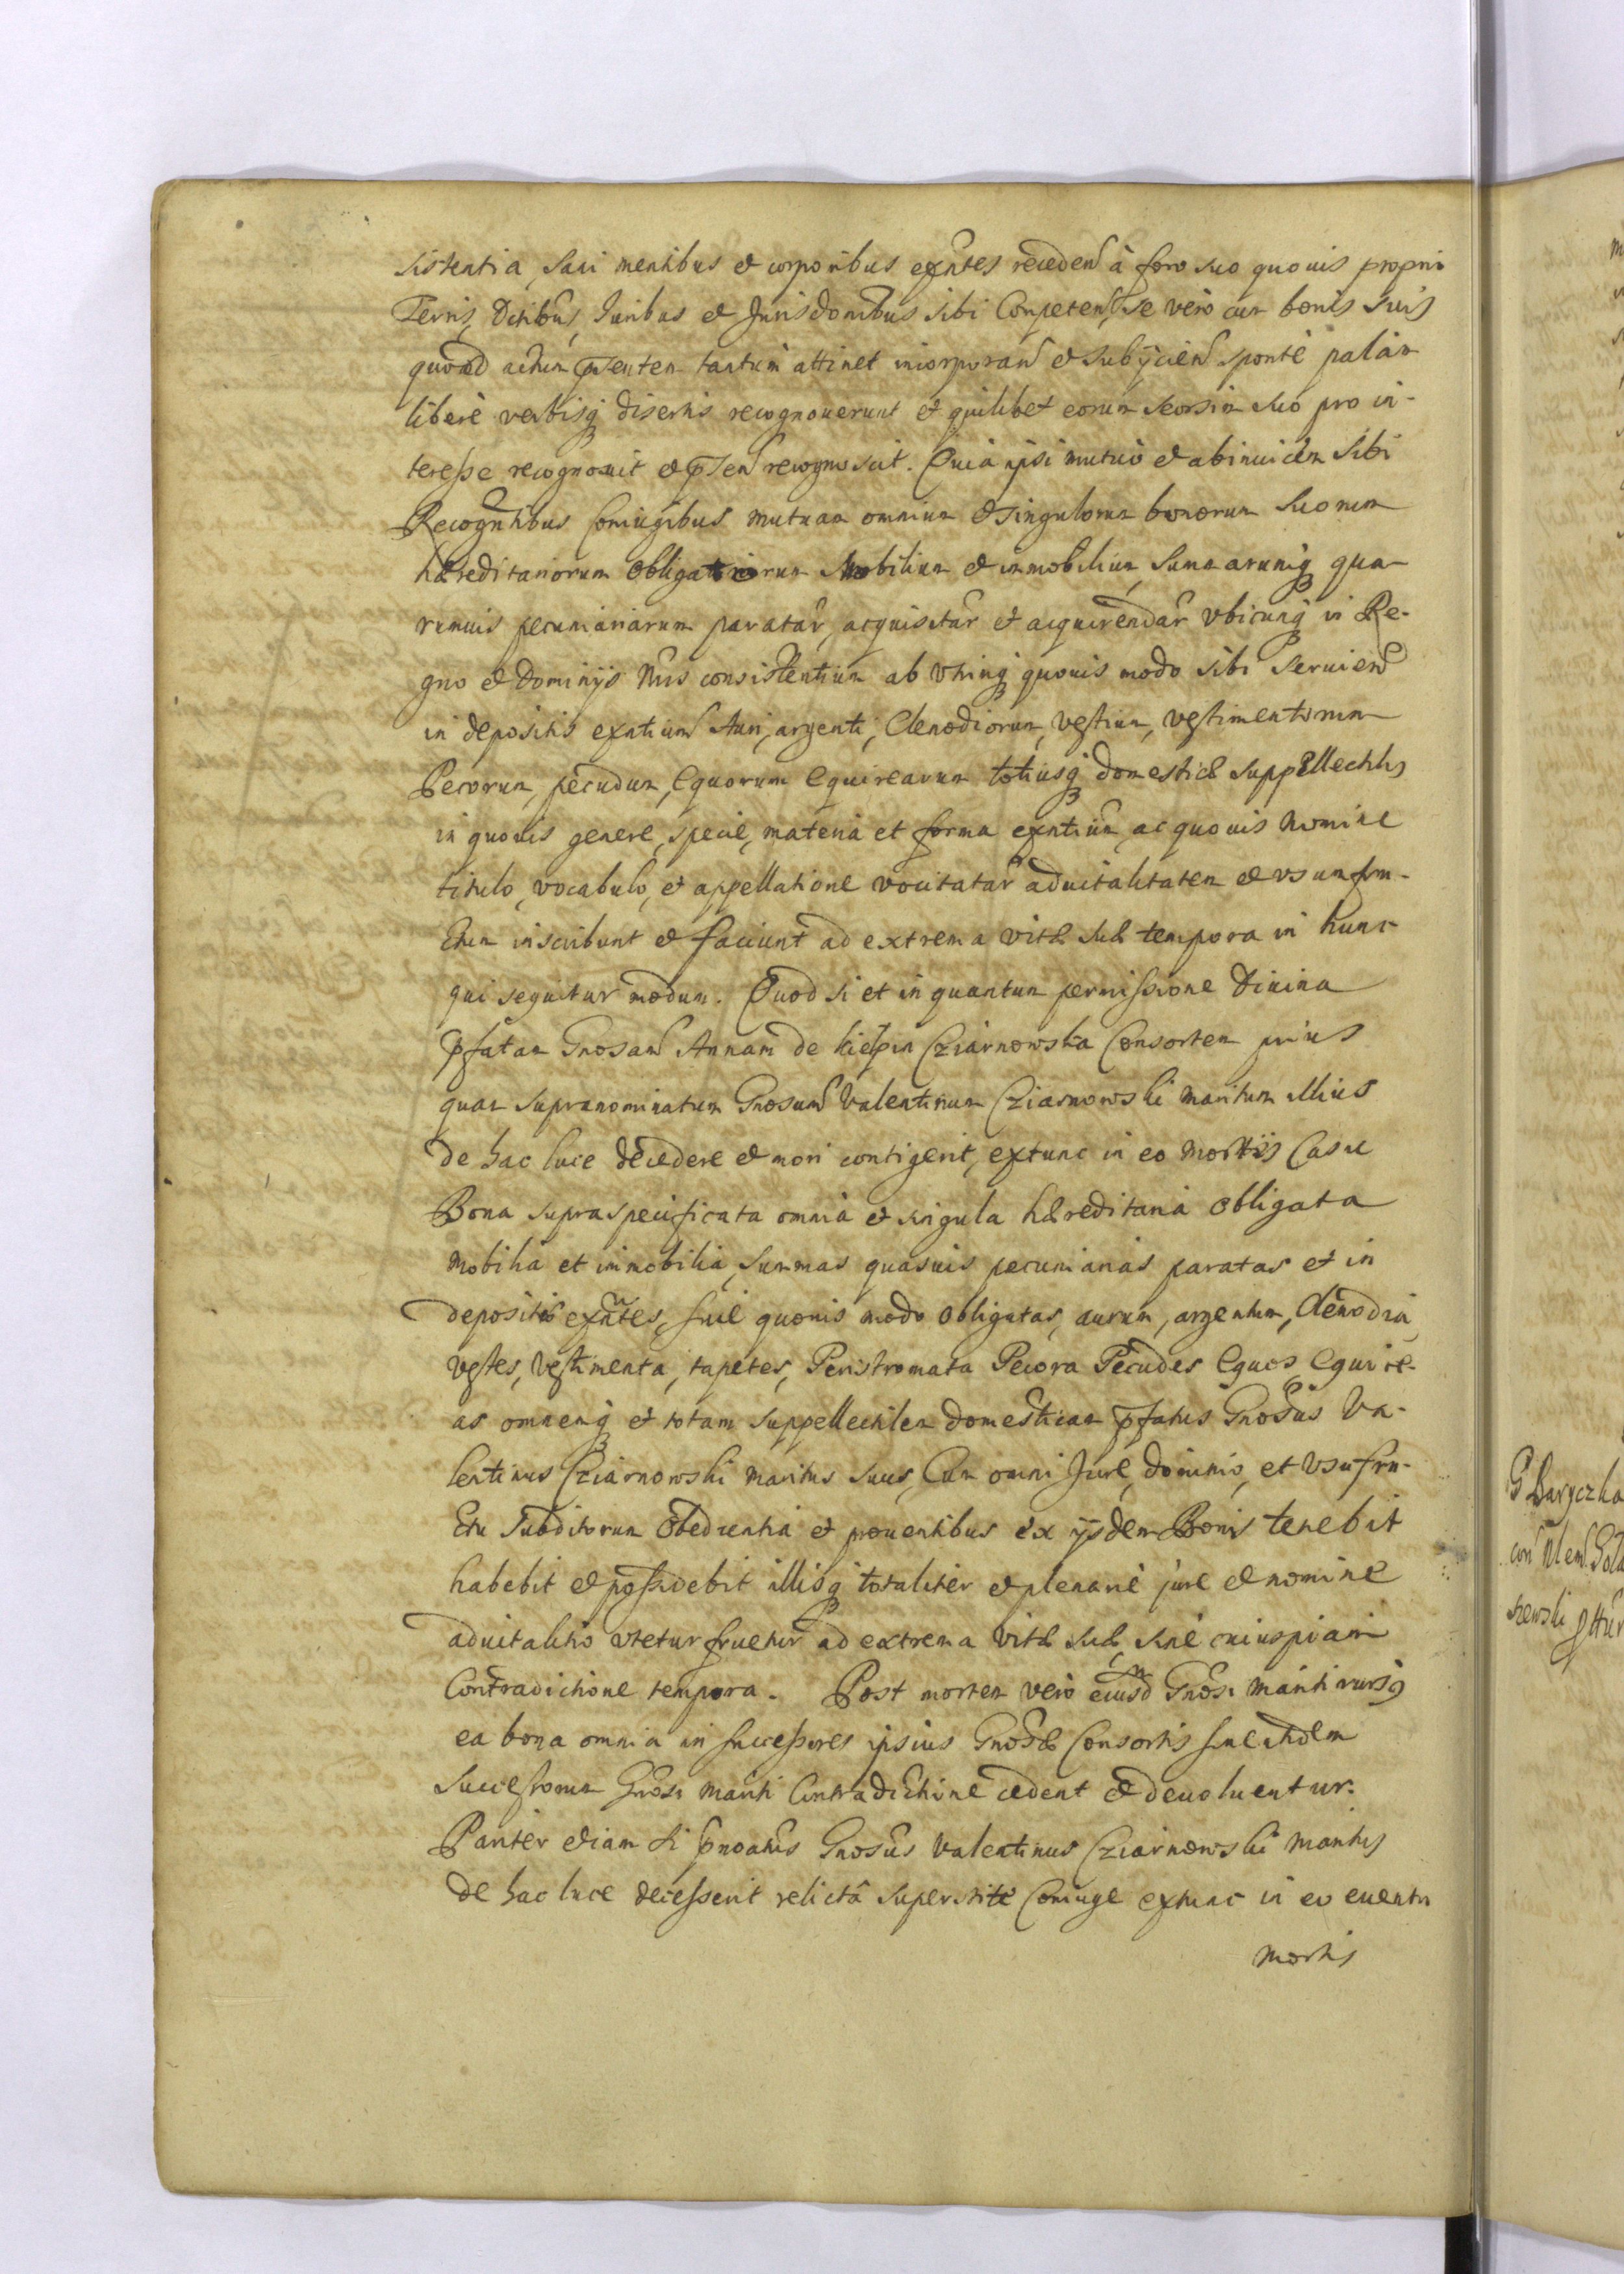 sistentia, sani mentibus et corporibus exñtes receden à foro suo quouis proprio
Terris, Ditibus, Iuribus et Jurisdonibus sibi Competen, Se vero cum bonis suis
quoad actum pñtem tantum attinet incorporan et subijcien sponte palam
libere verbisq disertis recognouerunt et quilibet eorum seorsim suo pro in-
teresse recognouit et pñsen recognoscit. Quia ipsi mutuo et abinuicem sibi
Recogntibus Coniugibus mutuam omnium et singulorum bonorum suorum
hæreditariorum obligatoriorum Mobilium et inmobilium, Summarumq qua-
rumuis pecuniariarum paratar, acquisitar et acquirendar vbicunq in Re-
gno et Dominijs Nris consistentium ab vtrinq quouis modo sibi seruien
in depositis exntium Auri, argenti, Clenodiorum, vestium, vestimentorum
Pecorum, pecudum, Equorum Equirearum totiusq domesticæ suppellectilis
in quouis genere, specie, materia et forma exntium, ac quouis nomine
titulo, vocabulo, et appellatione vocitatar aduitalitatem et vsumfru-
ctum inscribunt et faciunt ad extrema vitæ suæ tempora in hunc
qui sequitur modum. Quod si et in quantum permissione Diuina
pfatam Gnosam Annam de Kiełpin Cziarnowska Consortem prius
quam supranominatum Gnosum Valentinum Cziarnowski maritum illius
de hac luce decedere et mori contigerit, extunc in eo mortis Casu
Bona supraspecificata omnia et singula hæreditaria obligata
mobilia et inmobilia, summas quasuis pecuniarias paratas et in
depositis exñtes, siue quouis modo obligatas, aurum, argentum, Clenodia
vestes, vestimenta, tapetes, Peristromata Pecora Pecudes Equos, Equire-
as omnemq et totam suppellectilem domesticam pfatus Gnosus Va-
lentinus Cziarnowski maritus suus, Cum omni Jure, dominio, et vsufru-
ctu Subditorum Obedientia et prouentibus ex ijsdem Bonis tenebit
habebit et possidebit illisq totaliter et plenarie jure et nomine
aduitalitio vtetur fruetur ad extrema vitæ suæ, sine cuiuspiam
Contradictione tempora. Post mortem vero eiusd Gnosi mariti rursus
ea bona omnia in successores ipsius Gnosæ Consortis sine itidem
Successorum Gnosi mariti Contradictione cedent et deuoluentur.
Pariter etiam si pnoatus Gnosus Valentinus Cziarnowski maritus
de hac luce decesserit relictâ superstite Coniuge extunc in eo euentu
mortis
G Baryczka